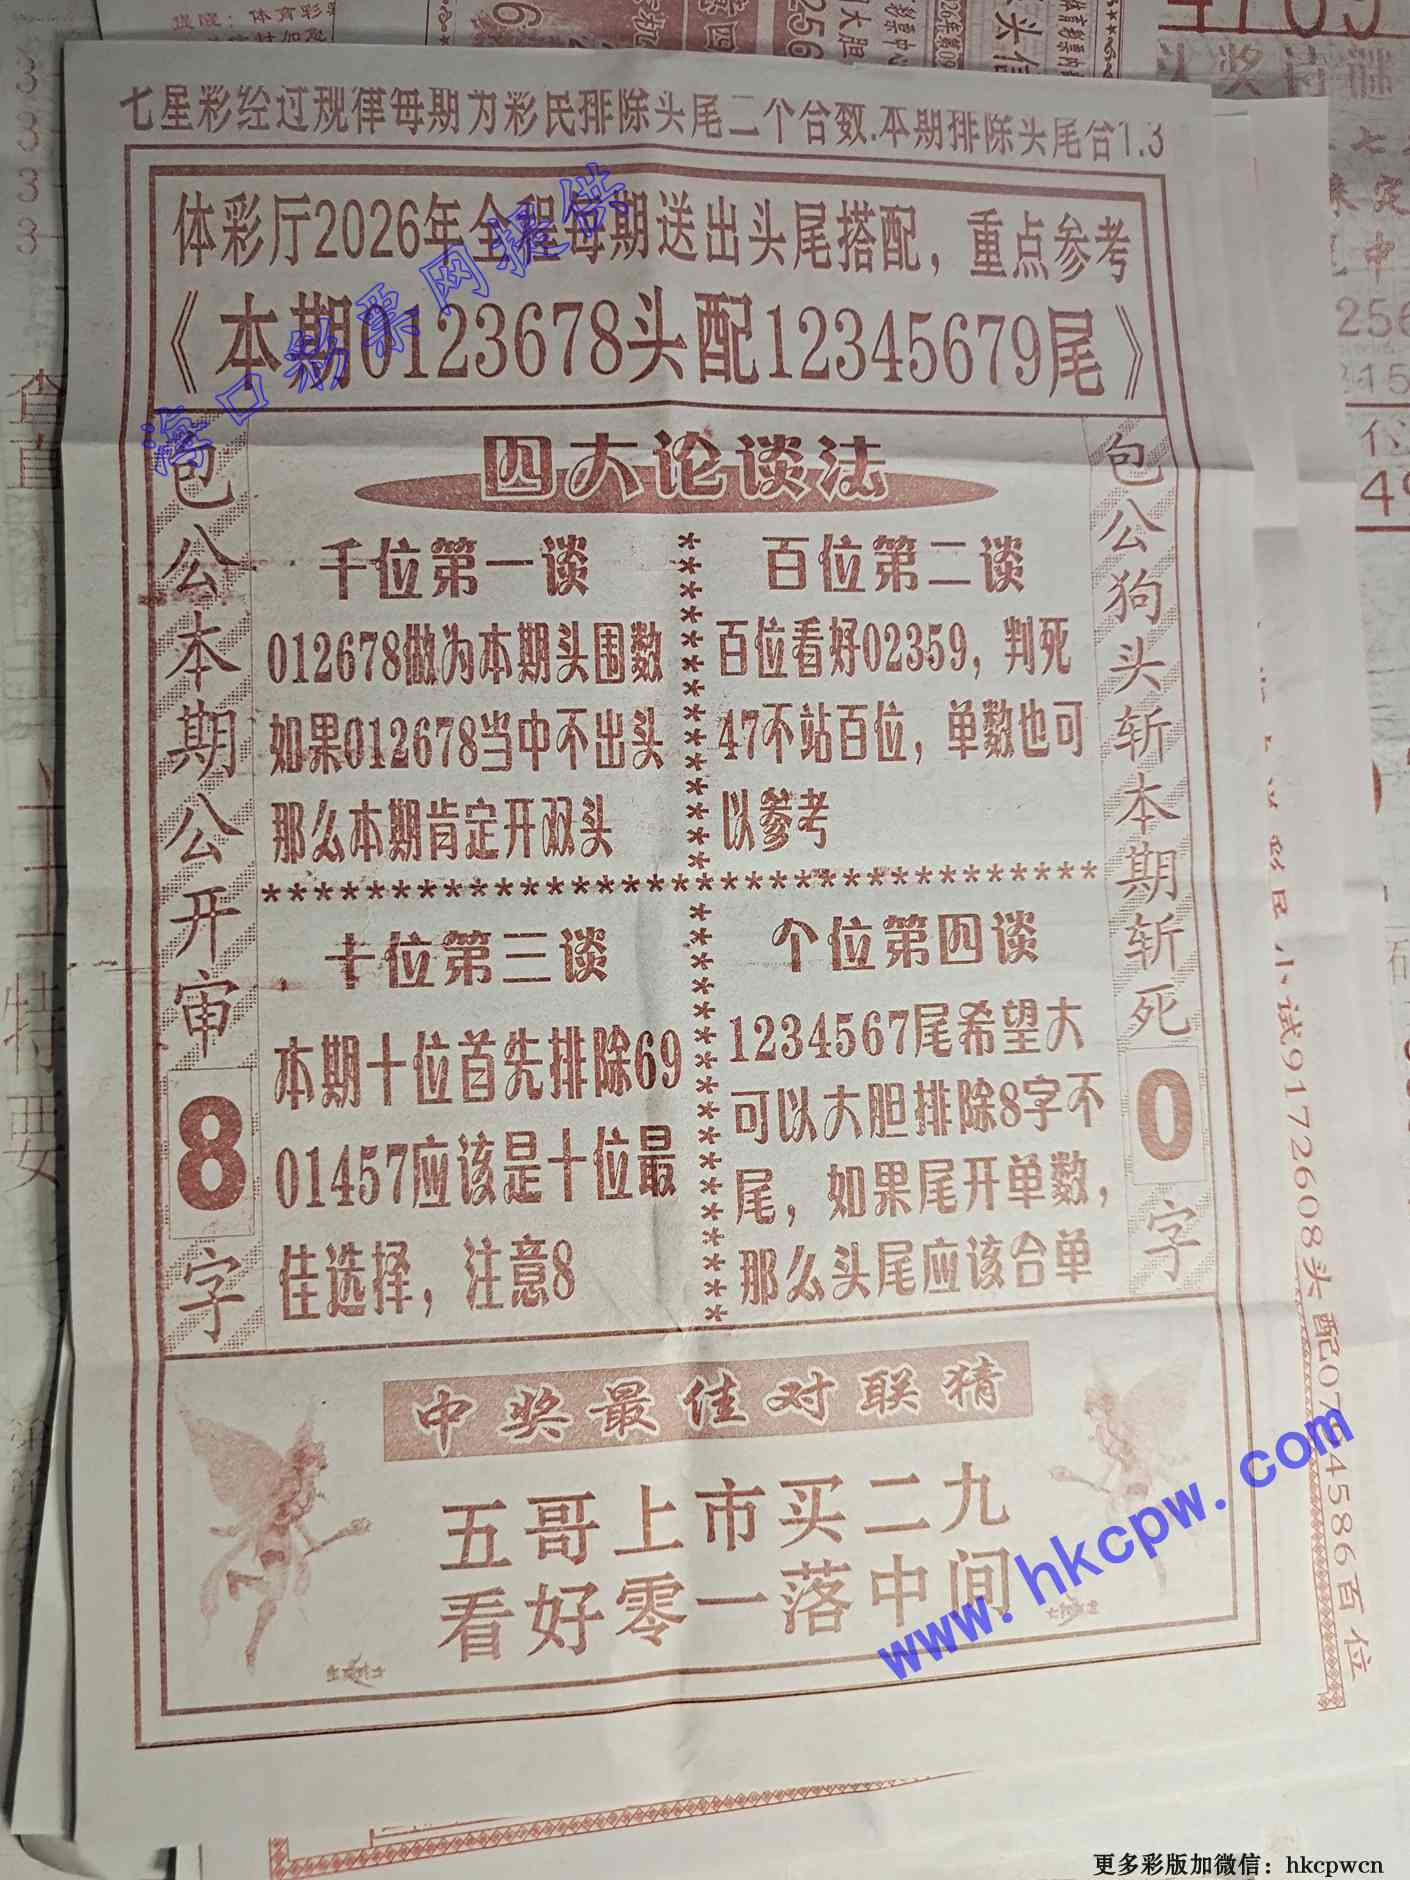 七星彩经过规律每期为彩民排除头尾二个合数.本期排除头尾合1.3
体彩厅2026年全程每期送出头尾搭配，重点参考
《本期0123678头配12345679尾》
四大论谈法
包公本期公开审8字
千位第一谈
012678做为本期头围数
如果012678当中不出头
那么本期肯定开双头
百位第二谈
百位看好02359，判死
47不站百位，单数也可
以参考
十位第三谈
本期十位首先排除69
01457应该是十位最
佳选择，注意8
个位第四谈
1234567尾希望大
可以大胆排除8字不
尾，如果尾开单数，
那么头尾应该合单
包公狗头斩本期斩死0字
中奖最佳对联猜
五哥上市买二九
看好零一落中间
海口彩票网提供
www.hkcpw.com
小试9172608头配0794586百位
更多彩版加微信：hkcpwcn